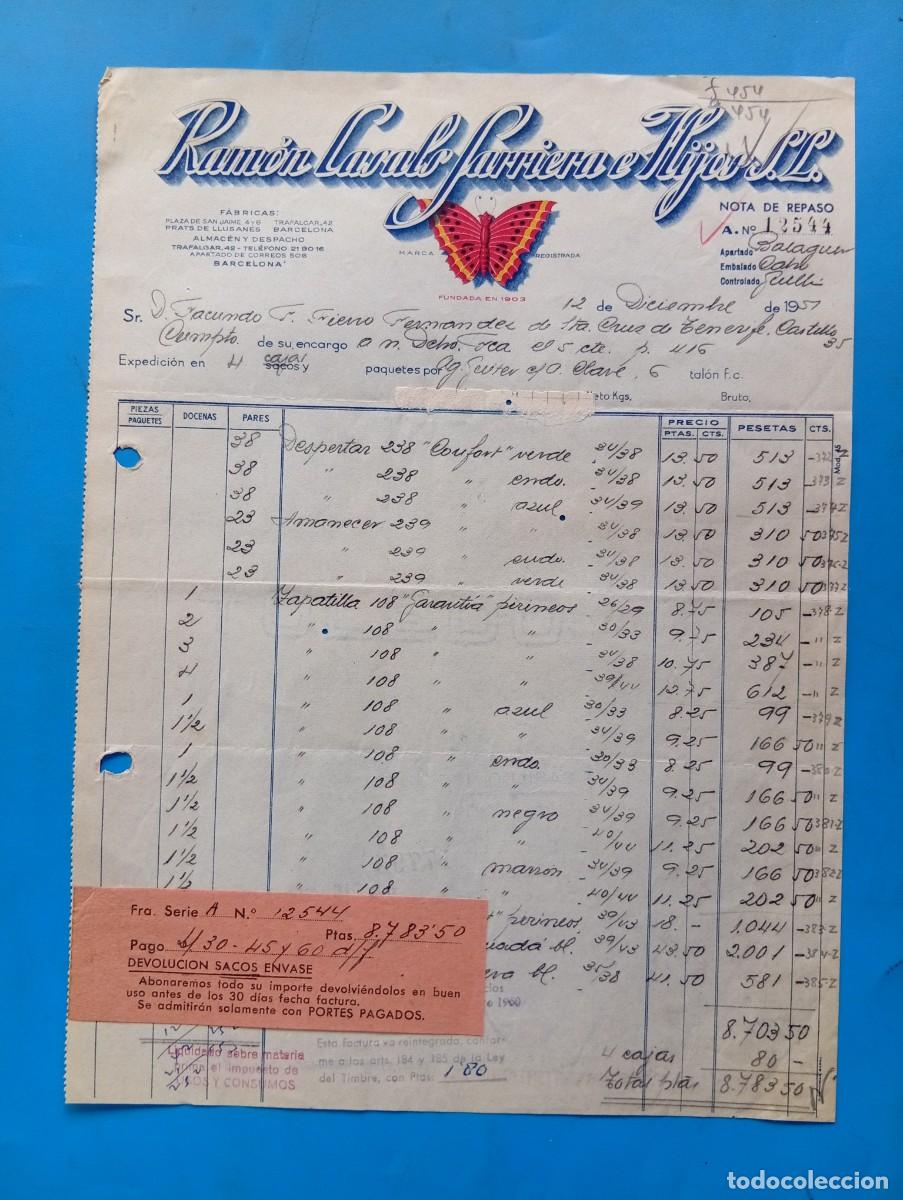 f 454
454
Ramón Casals Sarriera e Hijos S.L.
FÁBRICAS:
PLAZA DE SAN JAIME 4 y 6 TRAFALGAR, 42
PRATS DE LLUSANES BARCELONA
ALMACÉN Y DESPACHO
TRAFALGAR, 42 - TELÉFONO 21 90 16
APARTADO DE CORREOS 508
BARCELONA
MARCA REGISTRADA
FUNDADA EN 1903
NOTA DE REPASO
A. Nº 12544
Apartado Balaguer
Embalado
Controlado
12 de Diciembre de 1951
Sr. D. Facundo T. Fierro Fernandez de Sta. Cruz de Tenerife. Castillo 35
Cumpto. de su encargo a n. Dcho. oca el 5 cte. p. 416
Expedición en 4 cajas sacos y paquetes por Ag. c/o Clavé, 6 talón f.c.
Neto Kgs, Bruto,
PIEZAS PAQUETES DOCENAS PARES PRECIO PTAS. CTS. PESETAS CTS.
Mod. 45
38 Despertar 238 "Confort" verde 34/38 13.50 513 -372 Z
38 " 238 " cndo. 34/38 13.50 513 -373 Z
38 " 238 " azul 34/39 13.50 513 -374 Z
23 Amanecer 239 " " 34/38 13.50 310 50 375 Z
23 " 239 " cndo. 34/38 13.50 310 50 376-Z
23 " 239 " verde 34/38 13.50 310 50 377 Z
1 Zapatilla 108 "Garantía" pirineos 26/29 8.75 105 -378-Z
2 " 108 " " 30/33 9.75 234 - " Z
3 " 108 " " 34/38 10.75 387 - " Z
4 " 108 " " 39/44 12.75 612 - " Z
1 " 108 " azul 30/33 8.25 99 -379 Z
1 1/2 " 108 " " 34/39 9.25 166 50 " Z
1 " 108 " cndo. 30/33 8.25 99 -380 Z
1 1/2 " 108 " " 34/39 9.25 166 50 " Z
1 1/2 " 108 " negro 34/39 9.25 166 50 381-Z
1 1/2 " 108 " " 40/44 11.25 202 50 " Z
1 1/2 " 108 " marrón 34/39 9.25 166 50 382 Z
1 1/2 " 108 " " 40/44 11.25 202 50 " Z
" pirineos 39/43 18.- 1.044 -383-Z
bl. 39/43 43.50 2.001 -384-Z
bl. 35/38 41.50 581 -385-Z
Fra. Serie A N.º 12544
Ptas. 8.783'50
Pago s/ 30 - 45 y 60 d/f
DEVOLUCION SACOS ENVASE
Abonaremos todo su importe devolviéndolos en buen
uso antes de los 30 días fecha factura.
Se admitirán solamente con PORTES PAGADOS.
8.703 50
4 cajas 80 -
Total ptas 8.783 50
Liquidado sobre materia
prima el impuesto de
USOS Y CONSUMOS
Esta factura va reintegrada, confor-
me a los arts. 184 y 185 de la Ley
del Timbre, con Ptas. 1'80
todocoleccion